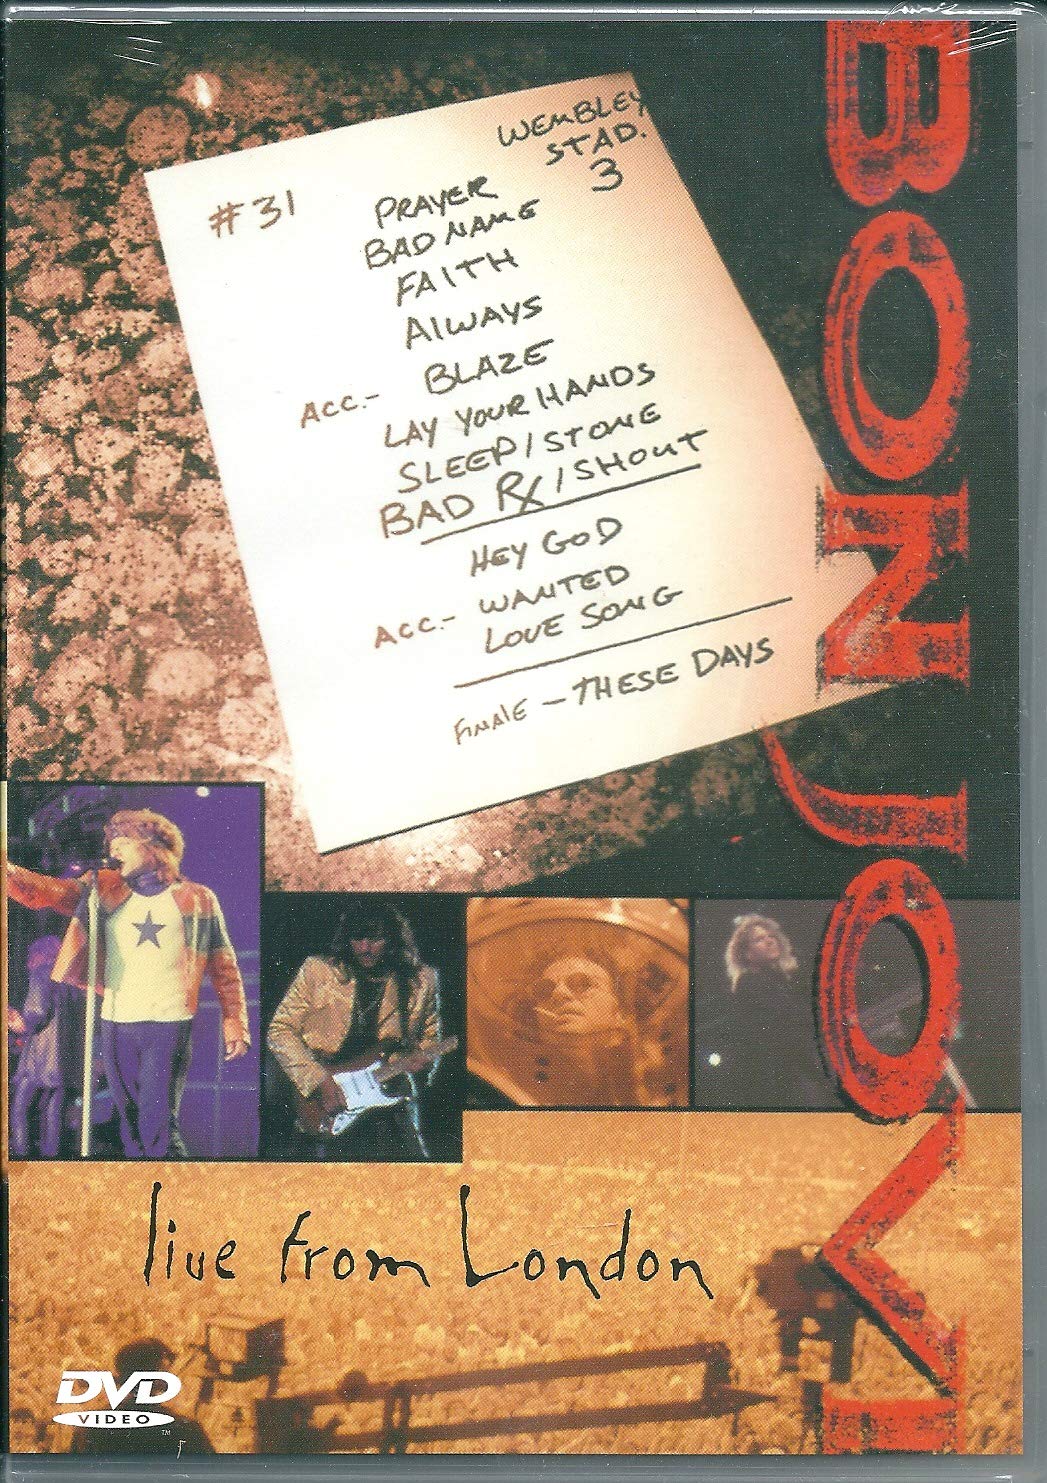 WEMBLEY
STAD.
3
#31
PRAYER
BAD NAME
FAITH
ALWAYS
ACC.- BLAZE
LAY YOUR HANDS
SLEEP/STONE
BAD RX/SHOUT
HEY GOD
ACC.- WANTED
LOVE SONG
FINALE - THESE DAYS
BON JOVI
live from London
DVD
VIDEO
TM